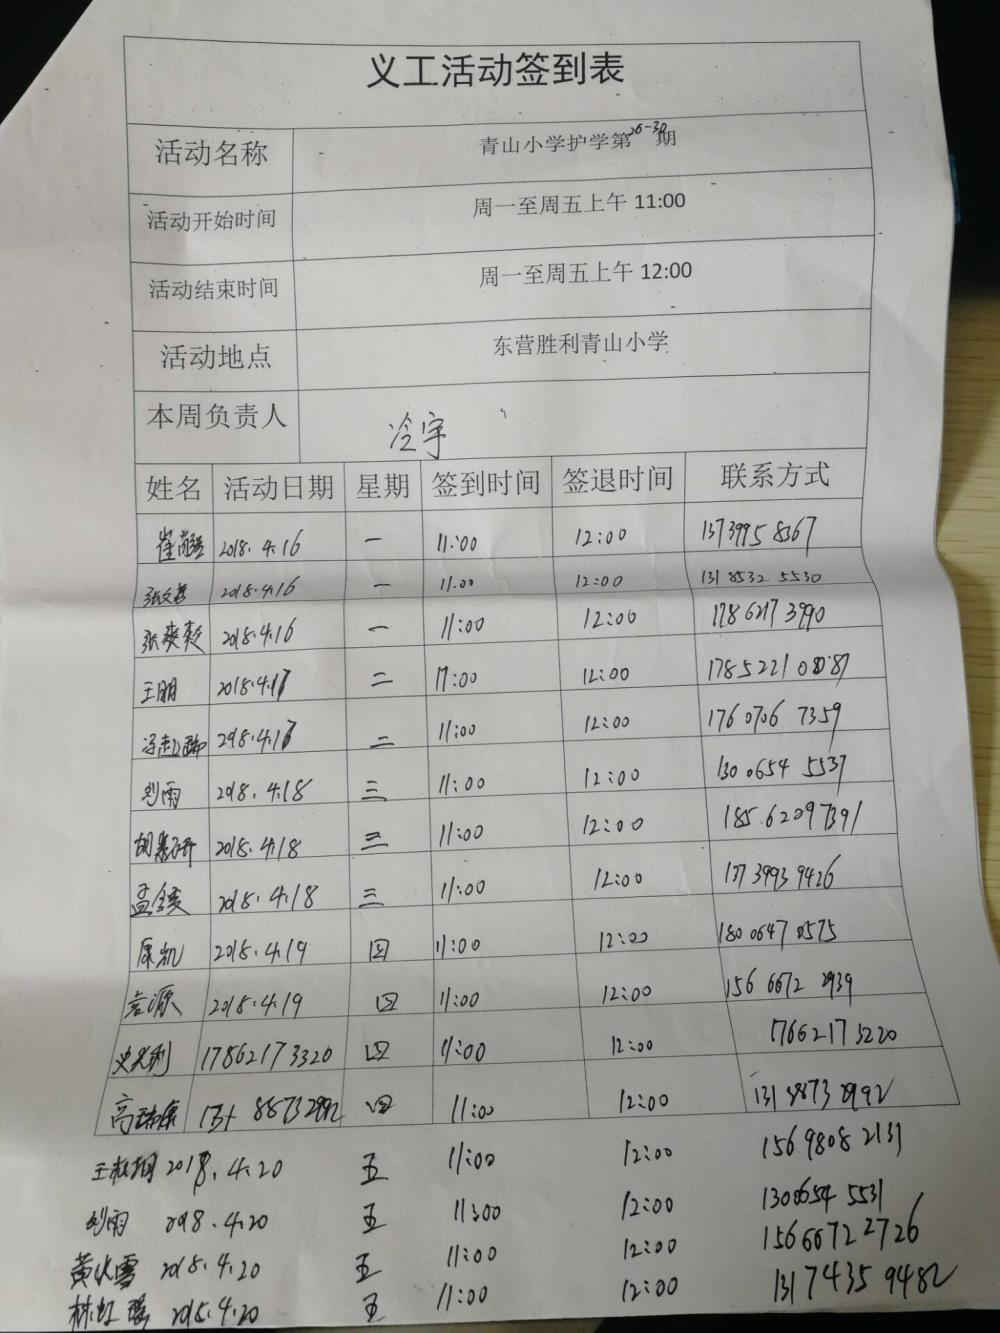 义工活动签到表
活动名称 青山小学护学第26-30期
活动开始时间 周一至周五上午 11:00
活动结束时间 周一至周五上午 12:00
活动地点 东营胜利青山小学
本周负责人 冷宇
姓名 活动日期 星期 签到时间 签退时间 联系方式
2018.4.16 一 11:00 12:00 13739958367
2018.4.16 一 11:00 12:00 131 8532 5530
张爽爽 2018.4.16 一 11:00 12:00 178 6217 3990
王朋 2018.4.17 二 11:00 12:00
2018.4.17 二 11:00 12:00 176 0706 7359
刘雨 2018.4.18 三 11:00 12:00 130 0654 5537
2018.4.18 三 11:00 12:00 185 62097391
2018.4.18 三 11:00 12:00 137 3993 9426
康凯 2018.4.19 四 11:00 12:00 180 0647 0575
袁源 2018.4.19 四 11:00 12:00 156 6672 2939
17862173320 四 11:00 12:00 17662173220
四 11:00 12:00
2018.4.20 五 11:00 12:00 156 9808 2131
刘雨 2018.4.20 五 11:00 12:00 1300654 5531
2018.4.20 五 11:00 12:00 15666722726
林虹 2018.4.20 五 11:00 12:00 1317435 9482